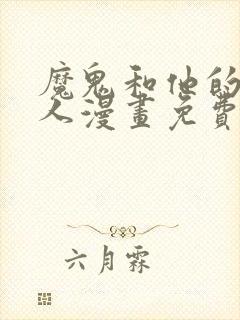 魔鬼和他的
人漫畫免費
六月霖